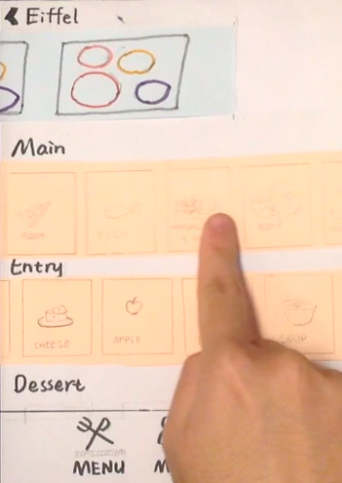 Eiffel
Main
Entry
CHEESE
APPLE
SOUP
Dessert
MENU
M